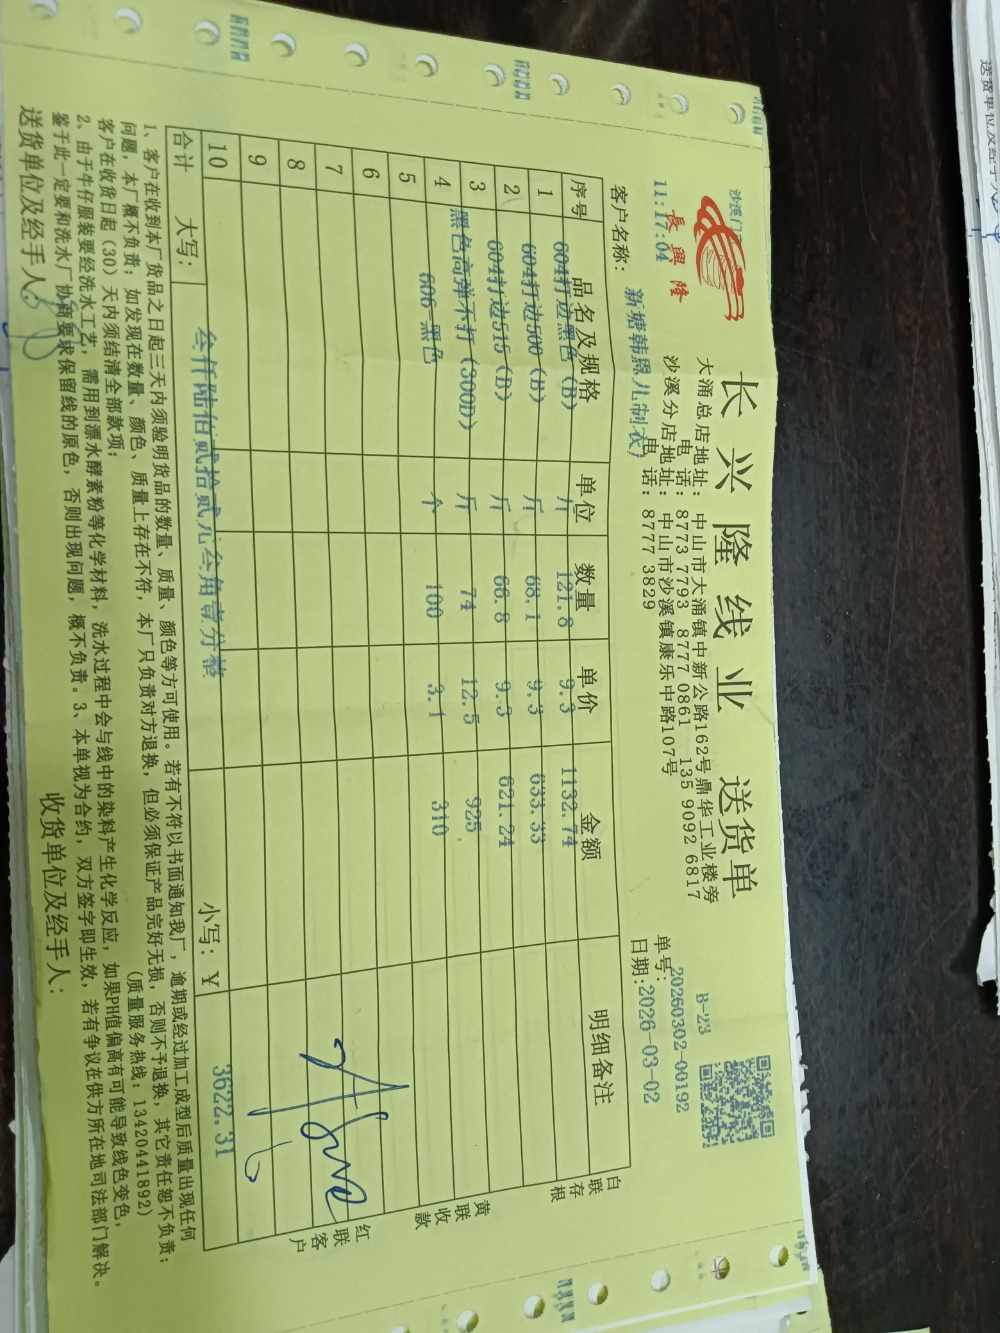 長興隆
11:17:04
长兴隆线业 送货单
大涌总店地址：中山市大涌镇中新公路162号鼎华工业楼旁
电 话：8773 7793 8777 0861 135 9092 6817
沙溪分店地址：中山市沙溪镇康乐中路107号
电 话：8777 3829
B-23
单号：20260302-00192
客户名称：新塘韩恩儿制衣
日期：2026-03-02
序号 品名及规格 单位 数量 单价 金额 明细备注
1 604打边黑色（B） 斤 121.8 9.3 1132.74
2 604打边500（B） 斤 68.1 9.3 633.33
3 604打边515（D） 斤 66.8 9.3 621.24
4 黑色高弹不打（300D） 斤 74 12.5 925
5 606-黑色 个 100 3.1 310
6
7
8
9
10
合计 大写：叁仟陆佰贰拾贰元叁角壹分整 小写：¥ 3622.31
白联存根
黄联收款
红联客户
1、客户在收到本厂货品之日起三天内须验明货品的数量、质量、颜色等方可使用。若有不符以书面通知我厂，逾期或经过加工成型后质量出现任何
问题，本厂概不负责；如发现在数量、颜色、质量上存在不符，本厂只负责对方退换，但必须保证产品完好无损，否则不予退换，其它责任恕不负责；
客户在收货日起（30）天内须结清全部款项； （质量服务热线：13420441892）
2、由于牛仔服装要经洗水工艺，需用到漂水酵素粉等化学材料，洗水过程中会与线中的染料产生化学反应，如果PH值偏高有可能导致线色变色，
鉴于此一定要和洗水厂协商要求保留线的原色，否则出现问题，概不负责。3、本单视为合约，双方签字即生效，若有争议在供方所在地司法部门解决。
送货单位及经手人： 收货单位及经手人：
送货单位及经手人